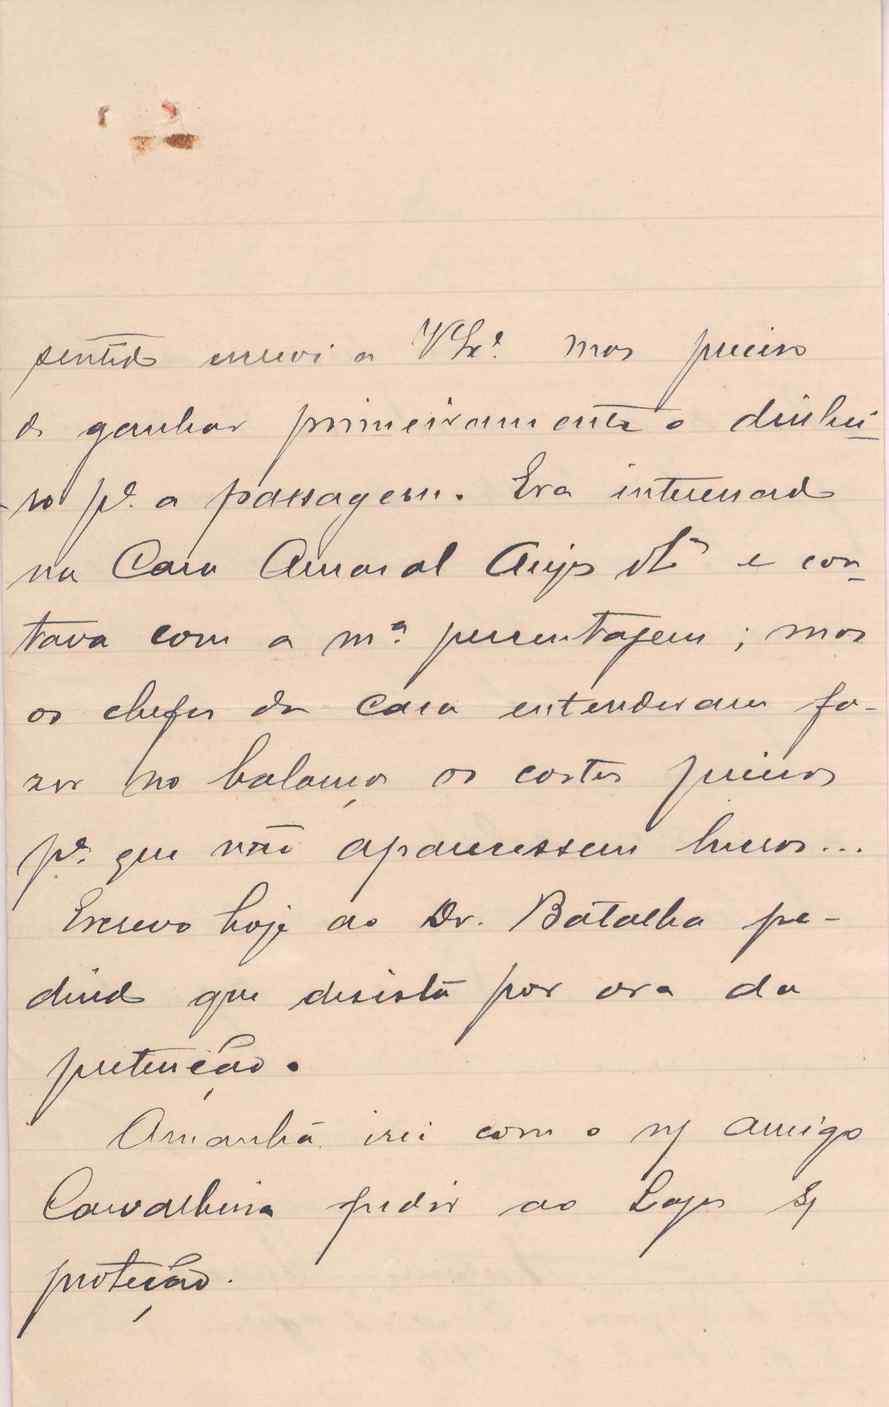 sentido escrevi a V. Exª. mas preciso
de ganhar primeiramente o dinhei-
ro pª. a passagem. Era interessado
na Casa Amaral & Cª e con-
tava com a mª percentagem; mas
os chefes da casa entenderam fa-
zer no balanço os cortes precisos
pª. que não aparecessem lucros...
Escrevo hoje ao Dr. Batalha pe-
dindo que desista por ora da
pretenção.
Amanhã irei com o n/ amigo
Carvalheira pedir ao Lages s/
proteção.